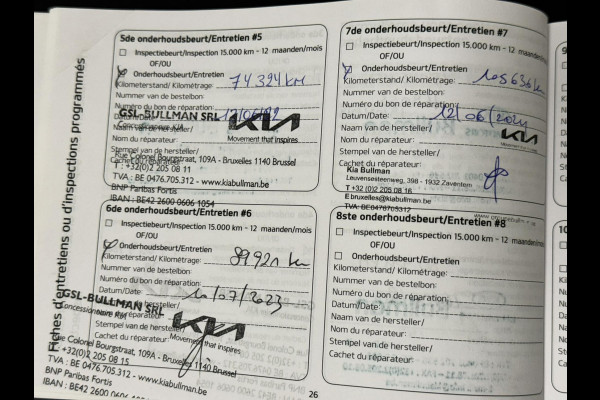 Fiches d'entretiens ou d'inspections programmés
5de onderhoudsbeurt/Entretien #5
Inspectiebeurt/Inspection 15.000 km - 12 maanden/mois
OF/OU
Onderhoudsbeurt/Entretien
Kilometerstand/ Kilométrage: 74324 KM
Nummer van de bestelbon:
Numéro du bon de réparation:
Datum/Date:
GSL-BULLMAN SRL
Naam van de hersteller/
Concessionnaire KIA
KIA
Nom du réparateur:
Movement that inspires
Stempel van de hersteller/
Rue Colonel Bourgstraat, 109A - Bruxelles 1140 Brussel
Cachet du réparateur:
T : +32(0)2 205 08 11
TVA : BE 0476.705.312 - www.kiabullman.be
BNP Paribas Fortis
IBAN : BE42 2600 0606 1054
6de onderhoudsbeurt/Entretien #6
Inspectiebeurt/Inspection 15.000 km - 12 maanden/mois
OF/OU
Onderhoudsbeurt/Entretien
Kilometerstand/ Kilométrage: 89921 km
Nummer van de bestelbon:
Numéro du bon de réparation:
Datum/Date: 10/07/2023
GSL-BULLMAN SRL
Naam van de hersteller/
Concessionnaire KIA
KIA
Nom du réparateur:
Movement that inspires
Stempel van de hersteller/
Rue Colonel Bourgstraat, 109A - Bruxelles 1140 Brussel
Cachet du réparateur:
T : +32(0)2 205 08 15
TVA : BE 0476.705.312 - www.kiabullman.be
BNP Paribas Fortis
26
7de onderhoudsbeurt/Entretien #7
Inspectiebeurt/Inspection 15.000 km - 12 maanden/mois
OF/OU
Onderhoudsbeurt/Entretien
Kilometerstand/ Kilométrage: 105636 km
Nummer van de bestelbon:
Numéro du bon de réparation:
Datum/Date: 12/06/2024
Naam van de hersteller/
KIA
Nom du réparateur:
Movement that inspires
Stempel van de hersteller/
Cachet du réparateur:
Kia Bullman
Leuvensesteenweg, 398 - 1932 Zaventem
T +32(0)2 205 08 16
E bruxelles@kiabullman.be
TVA: BE0476705312
8ste onderhoudsbeurt/Entretien #8
Inspectiebeurt/Inspection 15.000 km - 12 maanden/mois
OF/OU
Onderhoudsbeurt/Entretien
Kilometerstand/ Kilométrage:
Nummer van de bestelbon:
Numéro du bon de réparation:
Datum/Date:
Naam van de hersteller/
Nom du réparateur:
Stempel van de hersteller/
Cachet du réparateur: